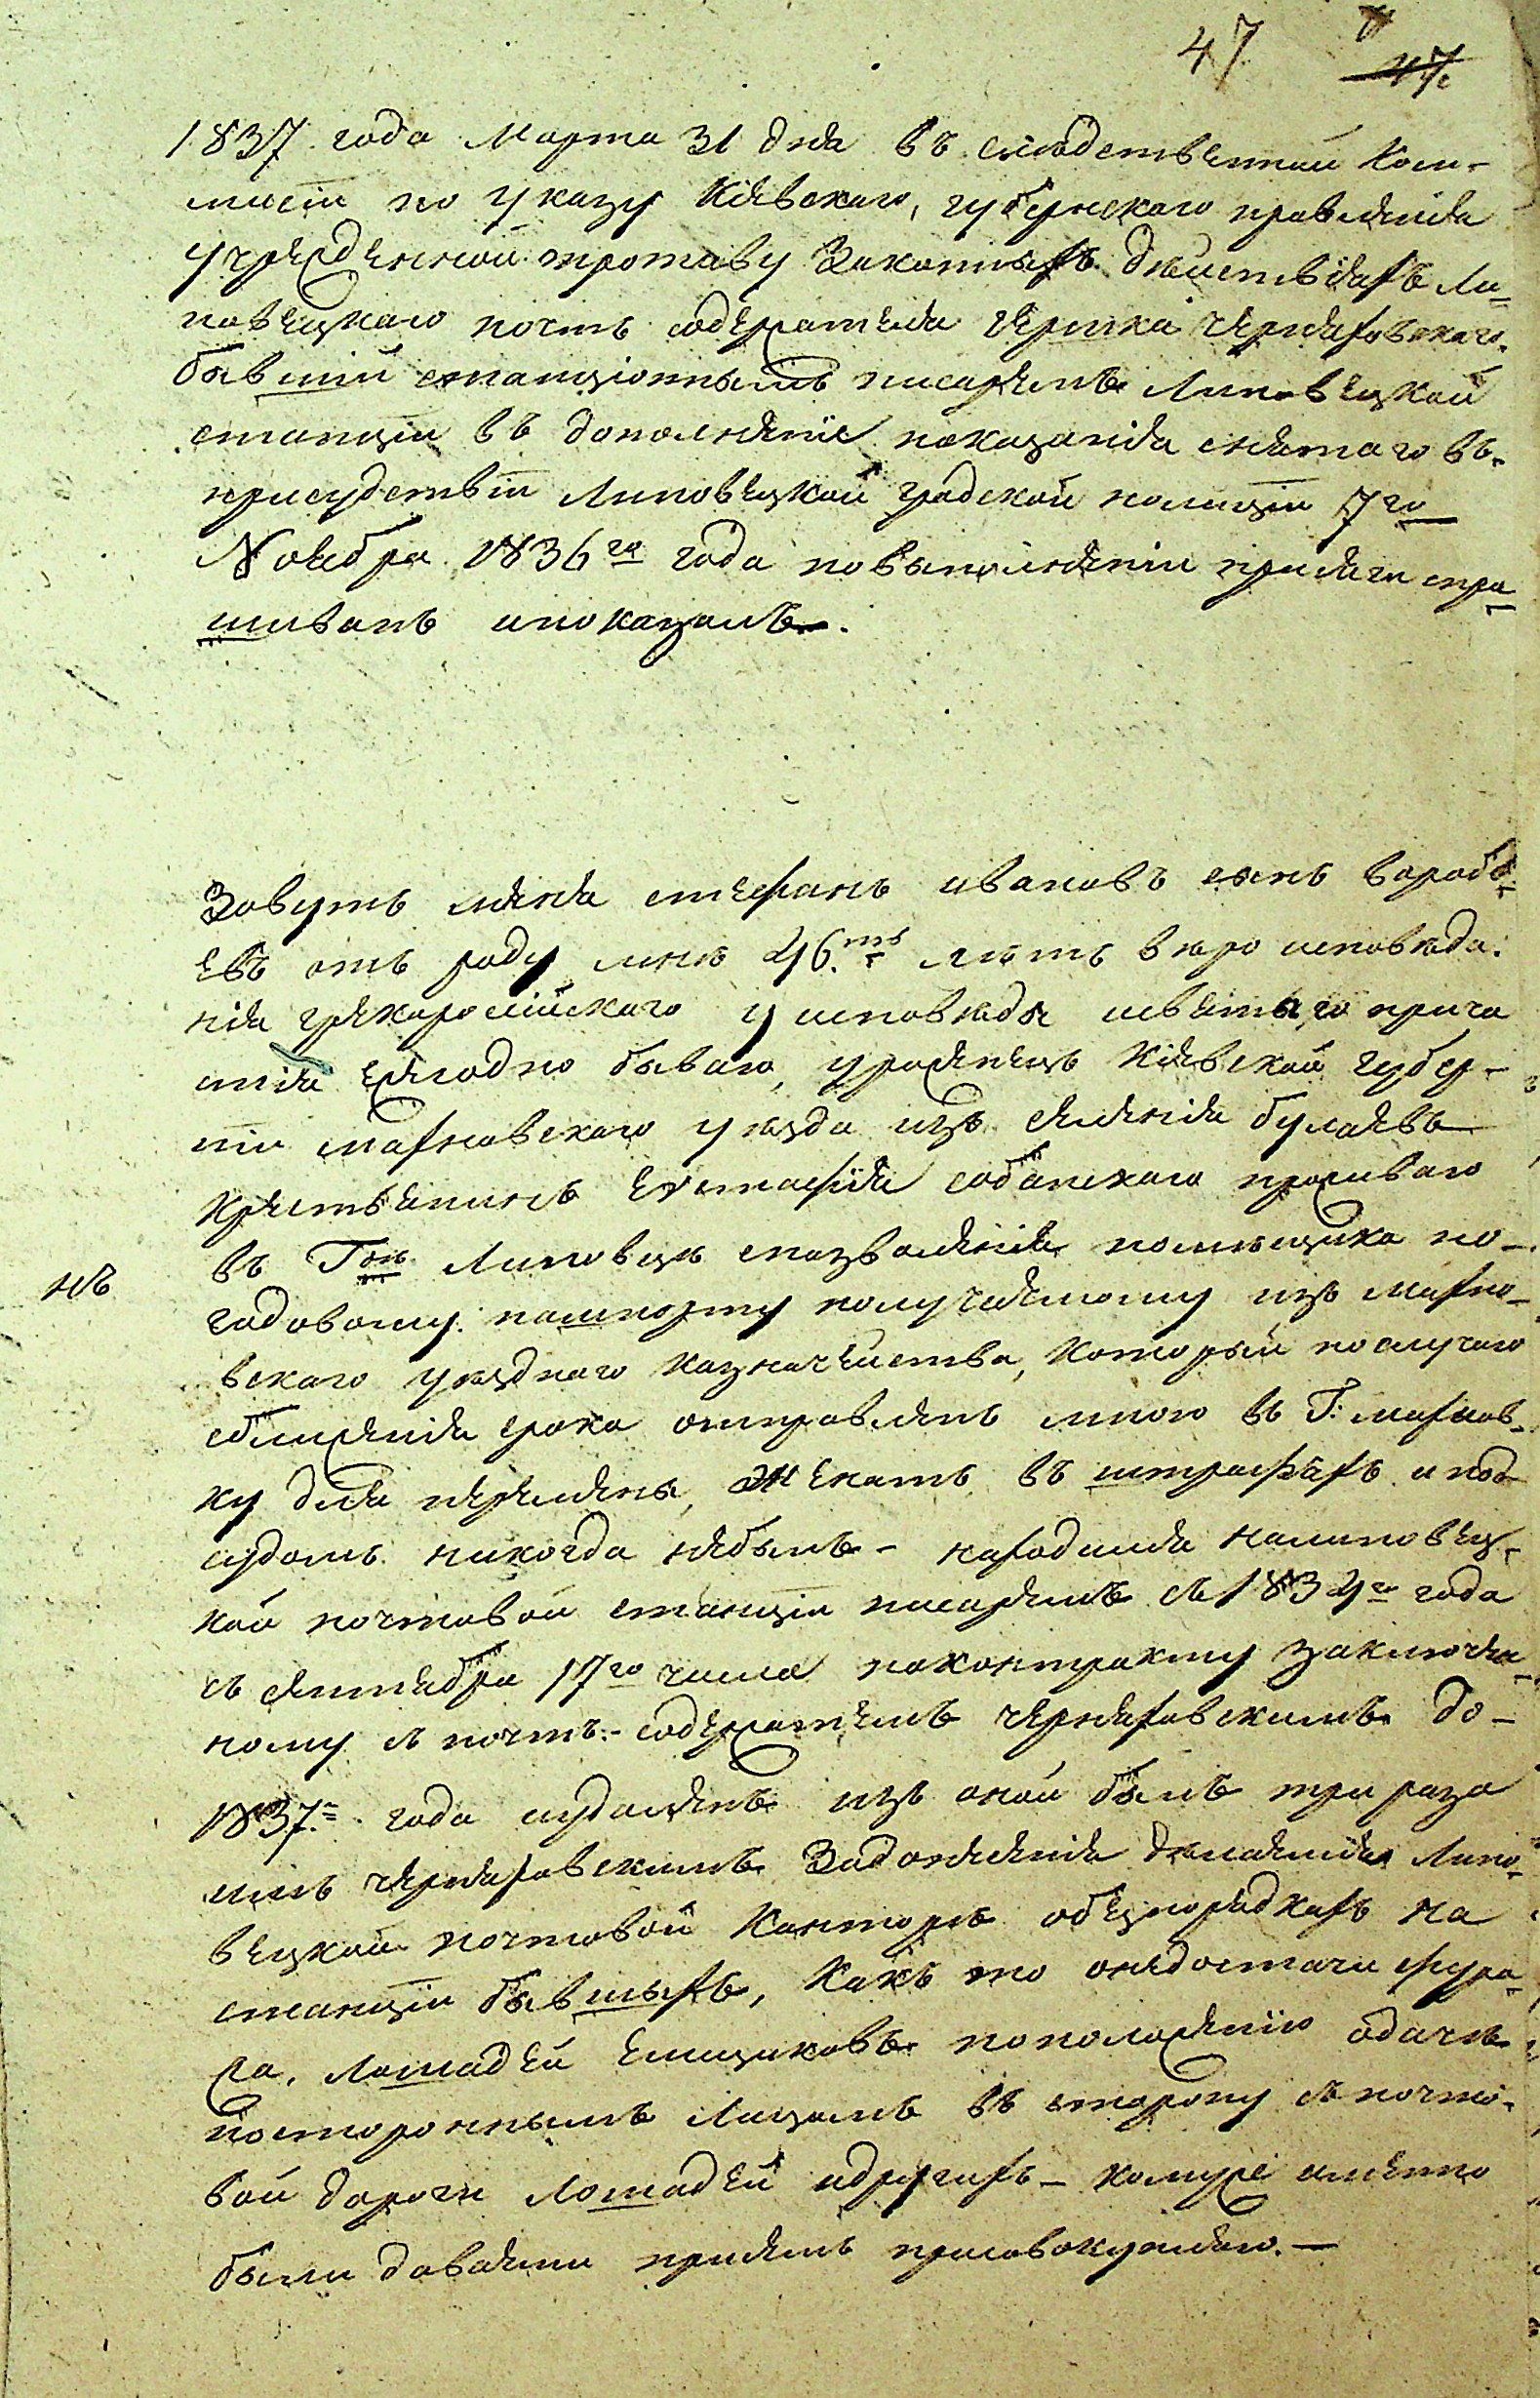 47 47
1837 года Марта 31 дня въ следственной Ком-
мисіи по указу Кіевскаго, губернскаго правленія
учрежденной противу Законныхъ действіяхъ Ли-
повецкаго почтъ содержателя Гершка Черняховскаго.
бывшій станціоннымъ писаремъ Липовецкой
станціи въ дополненіе показанія снятаго въ
присудствіи Липовецкой градской полиціи 7го
Ноября 1836го года по выполненіи присяги спра-
шиванъ и показалъ.
Зовутъ меня стефанъ ивановъ сынъ воробь-
евъ отъ роду мне 46.ть летъ веро исповеда-
нія грекоросійскаго у исповеды и святыго прича
стія ежегодно бываю, уроженецъ Кіевской губер-
ніи махновскаго уезда изъ селенія булаевъ
крестьянинъ Евстафія собанскаго проживаю
въ Гоне Липовце с позволенія помещика по-
нъ
годовому пашпорту получаемому изъ махно-
вскаго уезднаго казначейства, который по случаю
сближенія срока отправленъ мною въ Г: махнов-
ку для перемены, Женатъ въ штрафахъ и под
судомъ никогда небылъ - находился налиповец-
кой почтовой станціи писаремъ съ 1834го года
съ сентября 17го числа по контракту заключен-
ному съ почтъ-содержателемъ черняховскимъ до-
1837- года и удаленъ изъ оной былъ три раза
имъ черняховскимъ За донесенія делаемія Липо-
вецкой почтовой Канторе о безпорядкахъ на
станціи бывшихъ, Какъ то о недостачи фура-
жа, лошадей ямщиковъ по положенію о даче
постороннымъ лицамъ въ сторону съ почто-
вой дороги лошадей и другихъ - кому же именно
были даваеми при семъ присовокупляю. -